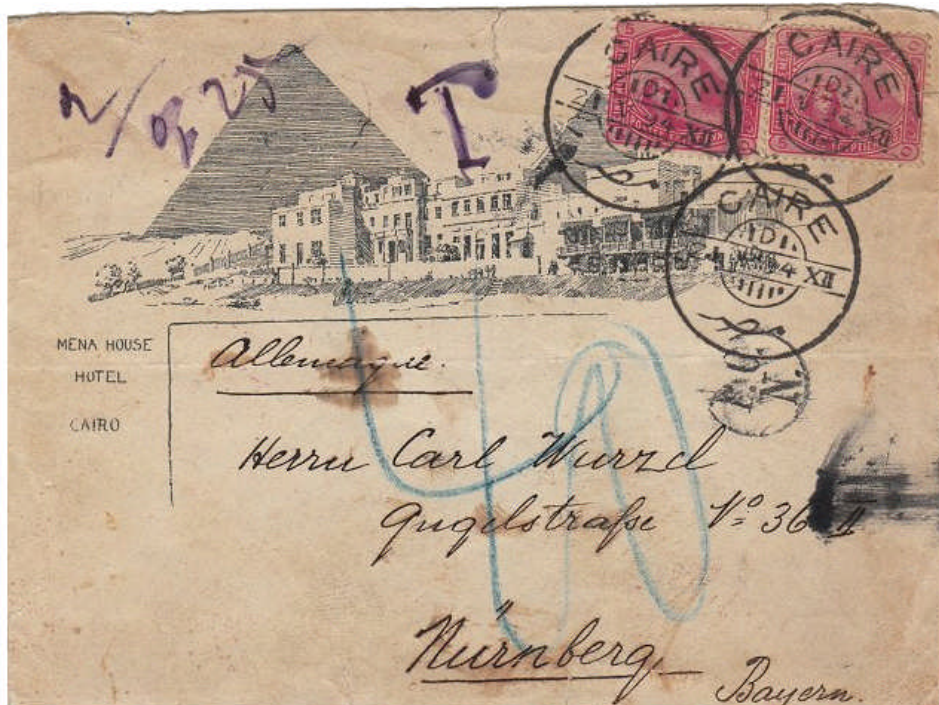 T
CAIRE
CAIRE
CAIRE
XII
MENA HOUSE
HOTEL
CAIRO
Allemagne.
40
Herrn Carl Wurzel
Gugelstraße Nº 36 II
Nürnberg
Bayern.